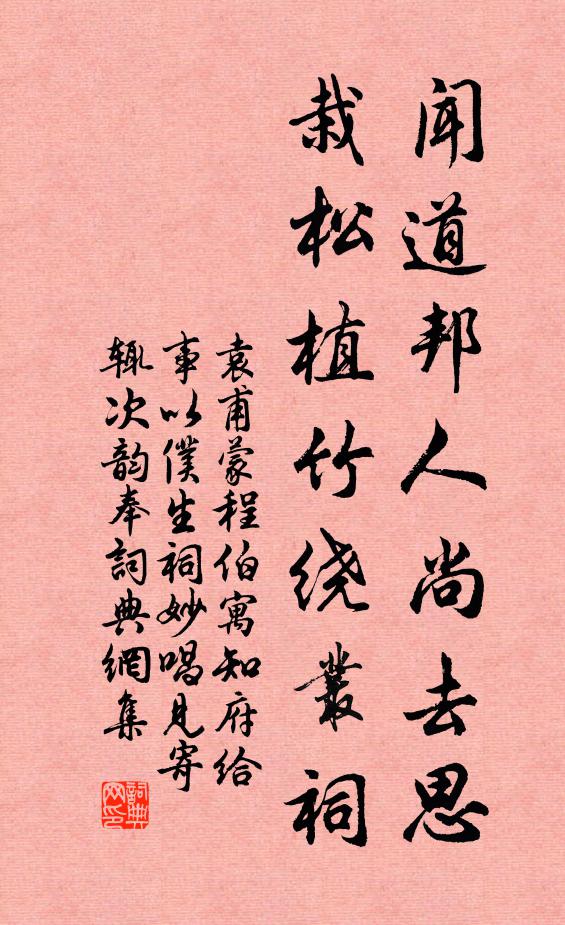 闻道邦人尚去思
栽松植竹绕叢祠
袁甫蒙程伯寓知府给
事以僕生祠妙唱见寄
辄次韵奉詞典網集
詞典
网印